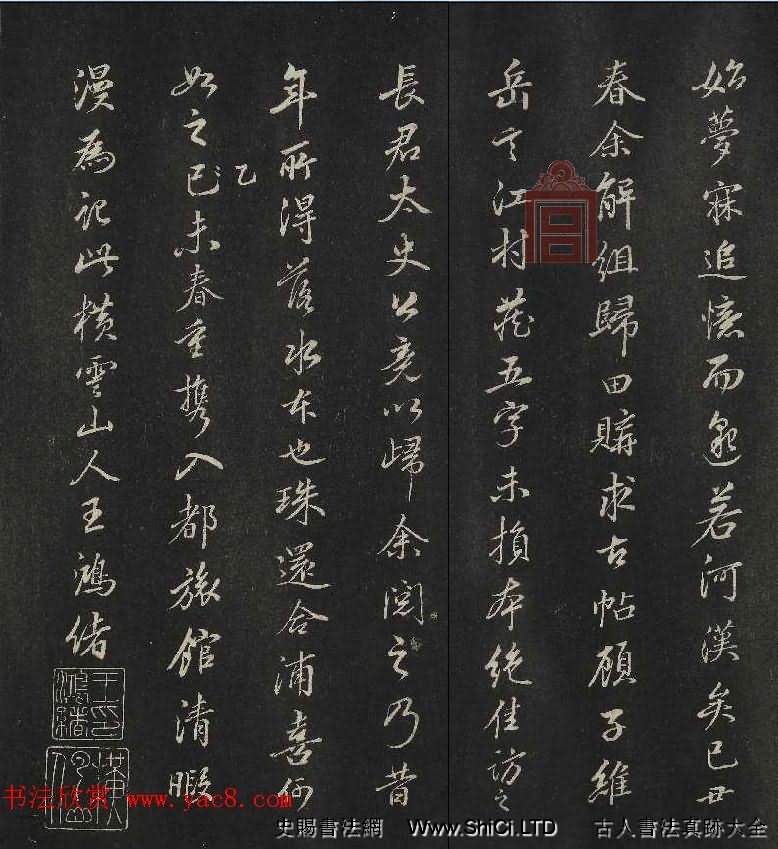 始夢寐追憶而邈若河漢矣己丑
春余解組歸田購求古帖顧子維
岳言江村藏五字未損本絕佳訪之
長君太史公竟以歸余閱之乃昔
年所得落水本也珠還合浦喜何
如之已未春重携入都旅館清暇
乙
漫為記此橫雲山人王鴻緒
王印鴻緒
书法欣赏 www.yac8.com
史賜書法網 Www.ShiCi.LTD 古人書法真跡大全